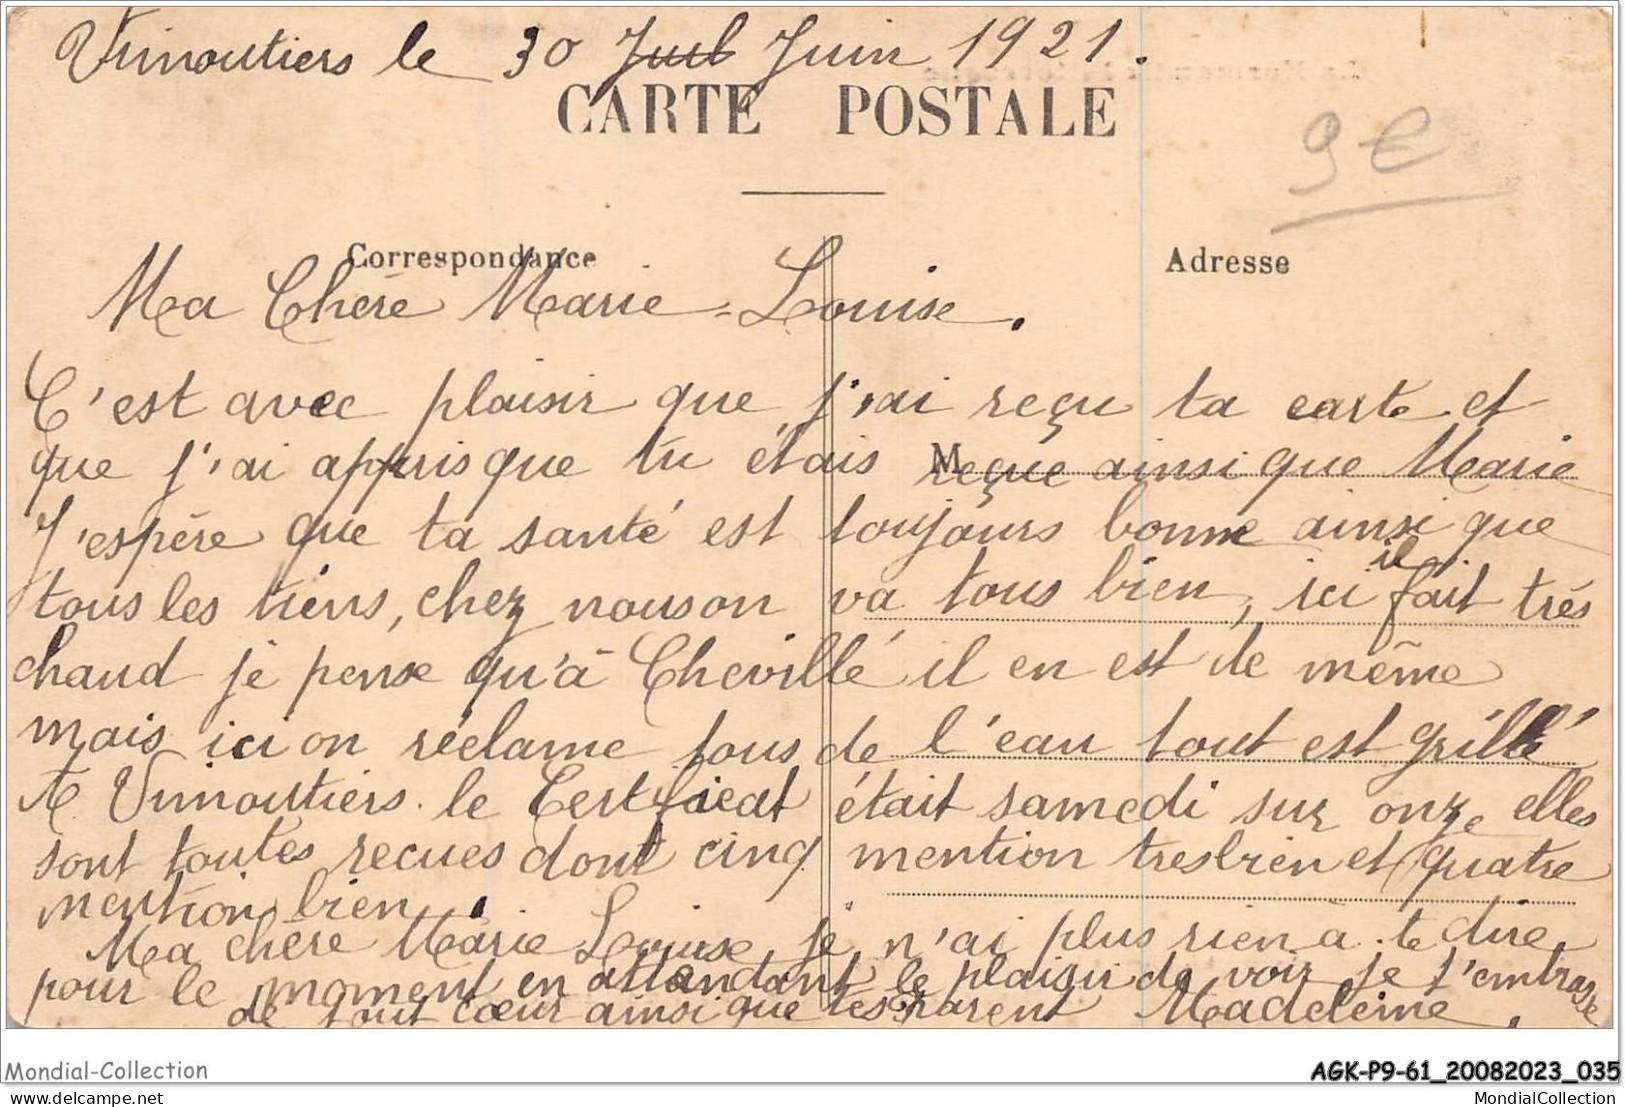 Vimoutiers le 30 Juil Juin 1921.
La Normandie Pittoresque
CARTE POSTALE
9€
Correspondance
Adresse
Ma Chère Marie-Louise.
C'est avec plaisir que j'ai reçu ta carte et
que j'ai appris que tu étais reçue ainsi que Marie
M
J'espère que ta santé est toujours bonne ainsi que
tous les tiens, chez nous on va tous bien, ici il fait très
chaud je pense qu'à Chevillé il en est de même
mais ici on réclame tous de l'eau tout est grillé
A Vimoutiers le Certficat était samedi sur onze elles
sont toutes recues dont cinq mention tres bien et quatre
mention bien.
Ma chère Marie Louise je n'ai plus rien à te dire
pour le moment en attendant le plaisir de voir je t'embrasse
de tout cœur ainsi que tes parent Madeleine.
Mondial-Collection
AGK-P9-61_20082023_035
delcampe.net
MondialCollection